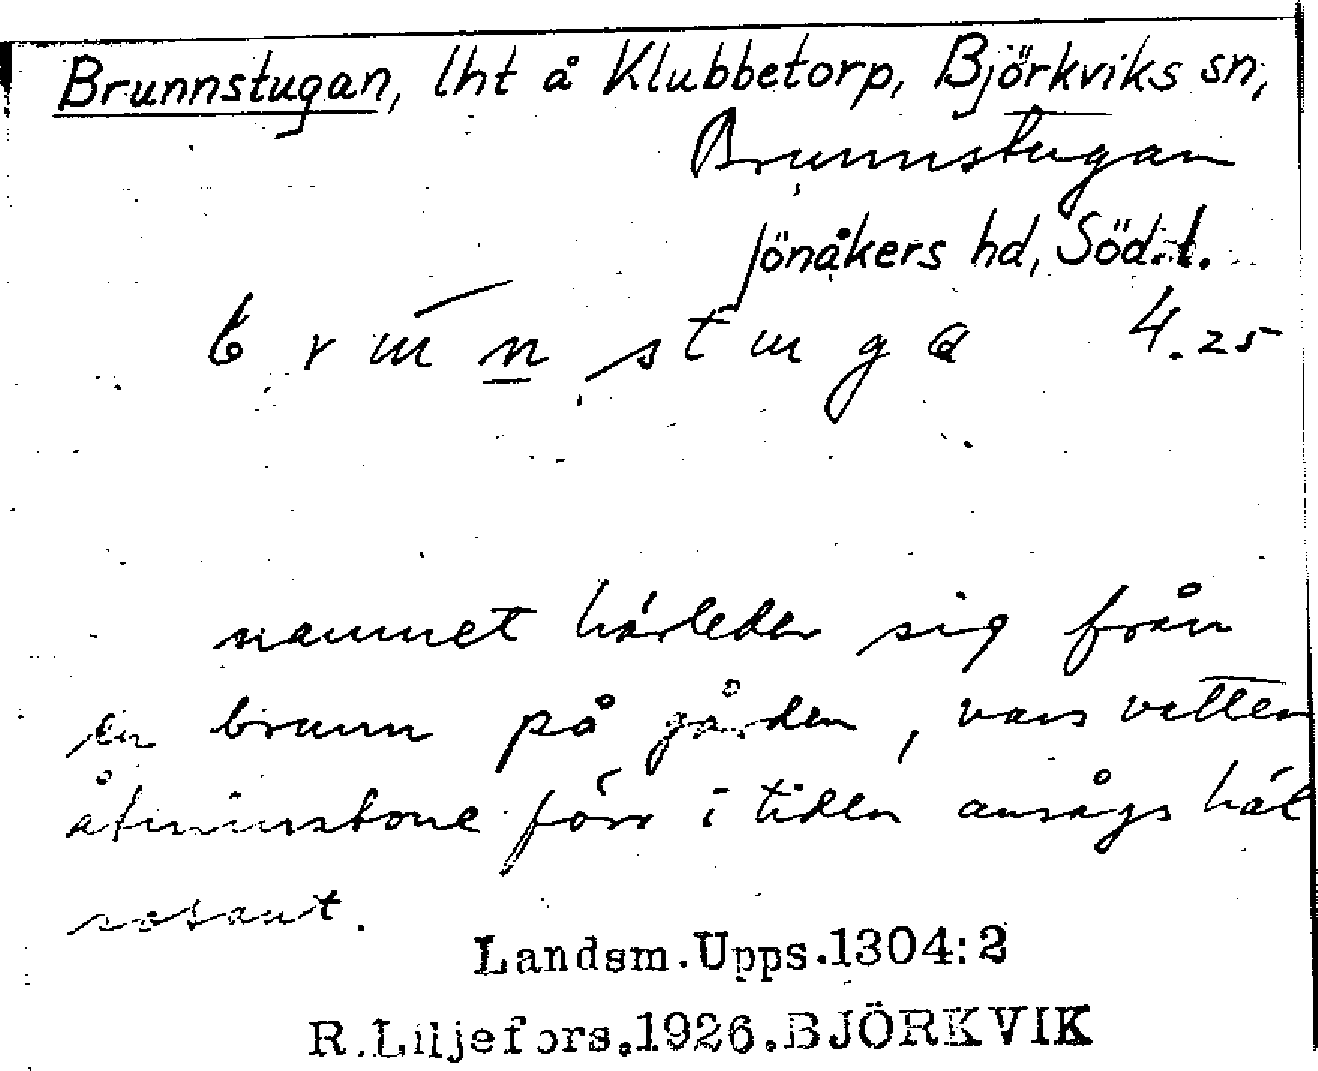 Brunnstugan, lht å Klubbetorp, Björkviks sn,
Brunnstugan
Jönåkers hd, Söd.l.
b r u n s t u g a 4.25
namnet härleder sig från
en brunn på gården, vars vatten
åtminstone förr i tiden ansågs häl
sosamt.
Landsm.Upps.1304:2
R.Liljefors.1926.BJÖRKVIK